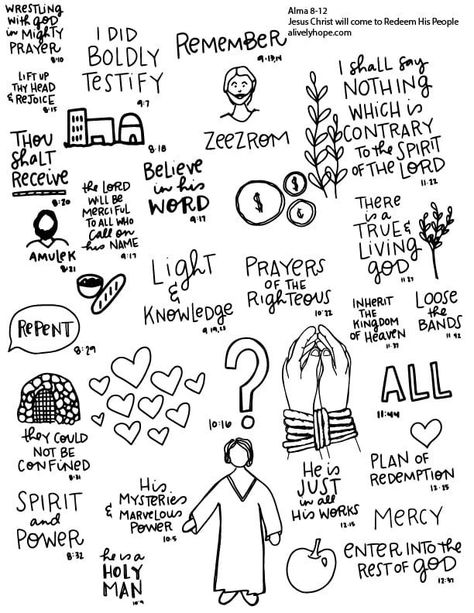 Alma 8-12
Jesus Christ will come to Redeem His People
alivelyhope.com
WRESTLING
with GOD
in MIGHTY
PRAYER
8:10
I DID
BOLDLY
TESTIFY
9:7
REMEMBER
LIFT UP
THY HEAD
& REJOICE
8:15
8:18
ZEEZROM
I SHALL SAY
NOTHING
WHICH is
CONTRARY
to the SPIRIT
OF THE LORD
11:22
THOU
SHALT
RECEIVE
8:20
AMULEK
8:21
the LORD
WILL BE
MERCIFUL
TO ALL WHO
CALL ON
his NAME
9:17
BELIEVE
in his
WORD
9:17
$
$
¢
THERE
is a
TRUE &
LIVING
GOD
11:27
LIGHT
&
KNOWLEDGE
PRAYERS
OF THE
RIGHTEOUS
10:22
INHERIT
THE
KINGDOM
OF HEAVEN
11:37
LOOSE
the
BANDS
11:42
REPENT
8:29
?
10:16
ALL
11:44
they COULD
NOT BE
CONFINED
8:31
SPIRIT
and
POWER
8:32
His
MYSTERIES
&
MARVELOUS
POWER
10:5
he is a
HOLY
MAN
10:9
He is
JUST
in all
His WORKS
12:15
PLAN OF
REDEMPTION
12:25
MERCY
ENTER INTO the
REST OF GOD
12:37